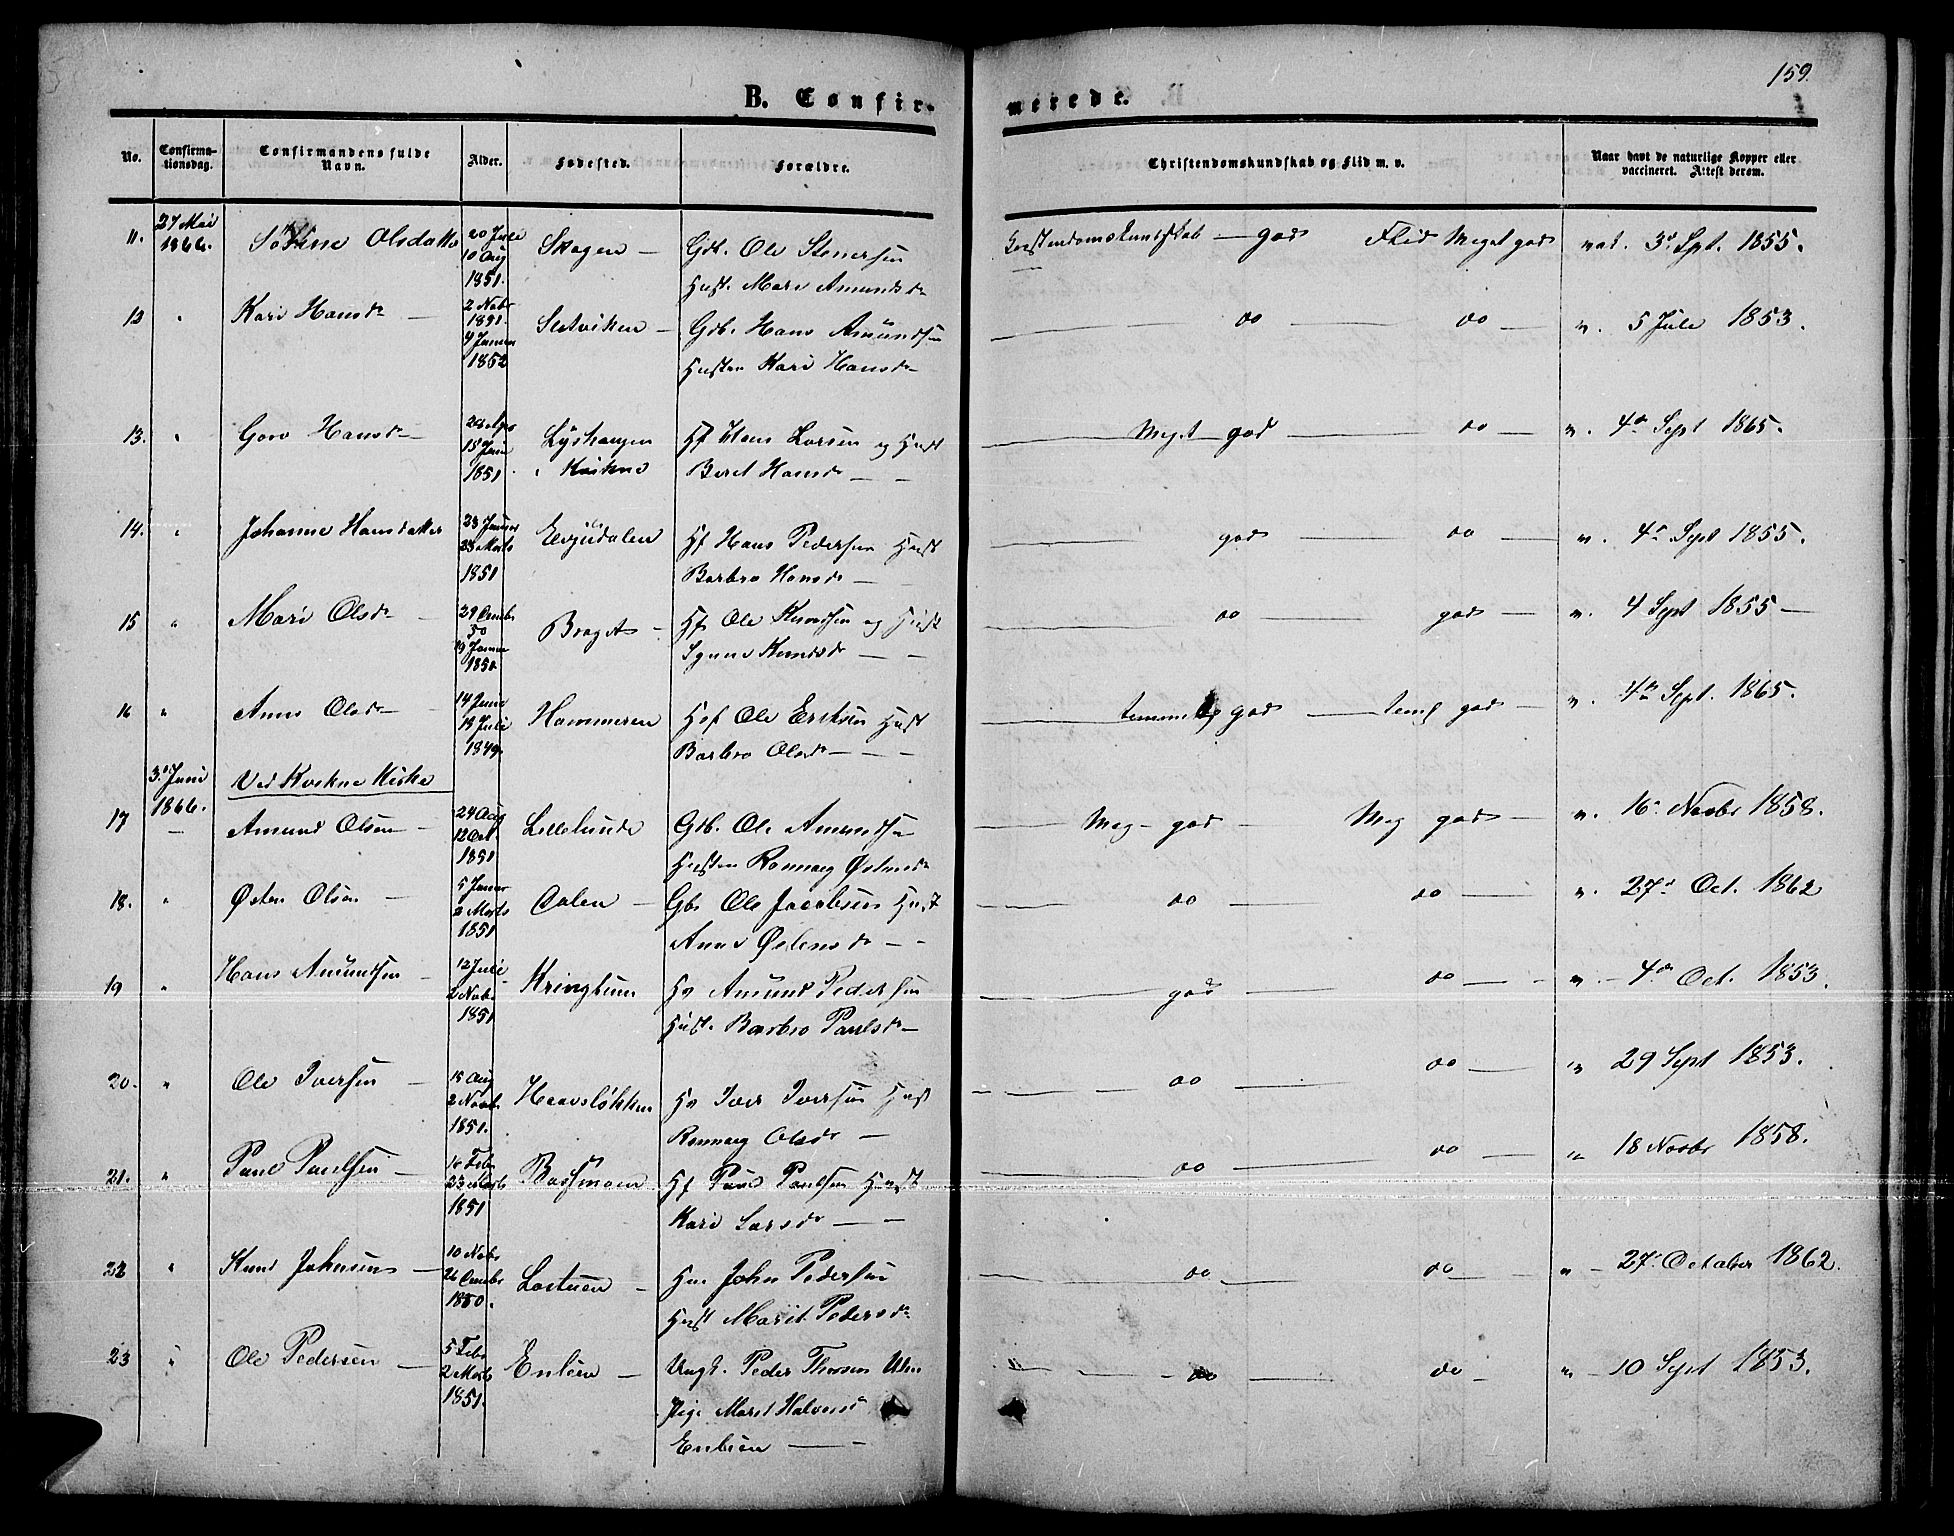 159.
B. Confir-
merede.
No.
Confirma-
tionsdag.
Confirmandens fulde
Navn.
Alder.
Fødested.
Forældre.
Christendomskundskab og Flid m. v.
Naar havt de naturlige Kopper eller
vaccineret. Attest derom.
11. 27 Mai 1866. Olsdatter 20 Juli 10 Aug 1851. Skogen — Gdb. Ole Stenersen
Hust. Mari Amundsdr
god Flid Meget god vac. 3d Spt. 1855.
12 " Kari Hansdr — 2 Novbr 1851. 4 Januar 1852 Sletviken — Gdb. Hans Amundsen
Hustru Kari Hansdr
do — do — v. 5 Juli 1853.
13. " Hansdr 15 Juni 1851. Kvikne Hf Hans Larsen og Hust
Beret Hansdr — —
Meget god — do — v. 4de Sept 1865.
14. " Johanne Hansdatter 23 Januar 23 Marts 1851 Evjudalen Hf Hans Pedersen Hust
Barbro Hansdr —
god — do — v. 4de Sept 1855.
15 " Mari Olsdr — 29 Decembr 50 19 Januar 1851. Hf Ole Knudsen og Hust
Knudsdr — —
do god — v. 4 Sept 1855 —
16 " Anne Olsdr — 14 Juni 19 Juli 1849. Hammeren Hsf Ole Eriksen Hust
Barbro Olsdr — — —
temmelig god — teml god — v. 4de Sept. 1865.
3d Juni 1866. Ved Kvikne Kirke
17 — Amund Olsen — 24 Aug 12 Oct. 1851 Lillelunde Gdb. Ole Amundsen
Hustru Ronnaug Østensdr
Meg — god — Meg god — v. 16de Novbr 1858.
18. " Østen Olsen — 5 Januar 2 Marts 1851 Dalen — Gbr Ole Jacobsen Hust
Anne Østensdr — —
do — do — v. 27de Oct. 1862
19 " Hans Amundsen — 12 Juli 2 Novbr 1851 Amund Pedersen
Hust. Barbro Paulsdr —
god — do — v. — 4de Oct. 1853.
20. " Ole Iversen — 15 Aug 2 Novbr 1851. Iver Iversen Hust
Ronnaug Olsdr —
do — do — " 29 Sept 1853.
21. " Paul Paulsen — 16 Febr 23 Marts 1851 Bassmoen Hf Paul Paulsen Hust
Kari Larsdr — —
do — do — " 18 Novbr 1858.
22 " Knud Johnsen — 10 Novbr 26 Decmbr 1850. — John Pedersen
Hust Marit Pedersdr
do — do — " — 27de October 1862.
23 " Ole Pedersen — 5 Febr 2 Marts 1851. Enlien — Ungk. Peder
Pige Marit Halvorsd
Enlien — —
do — do — " — 10 Sept 1853.